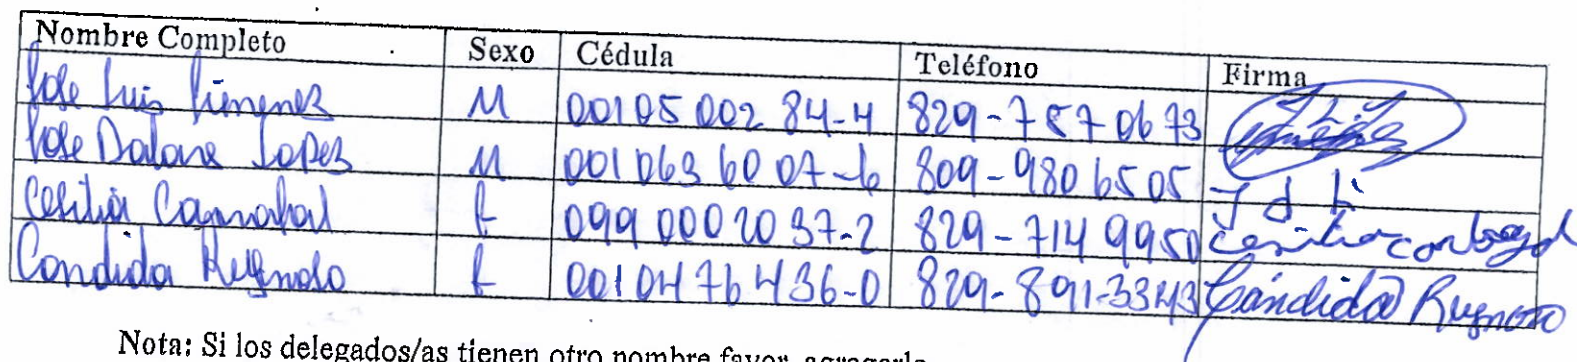 Nombre Completo Sexo Cédula Teléfono Firma
Jose Luis Jimenez M 00105002 84-4 829-757 0673 J.L.J
Jose Dolore Lopez M 001063 6007-6 809-980 6505 J d L
Cesilia M f 099 0002037-2 829-714 9950 cesilia carbajal
Candida Reynoso f 0010476436-0 829-891-3343 Cándida Reynoso
Nota: Si los delegados/as tienen otro nombre favor agregarlo